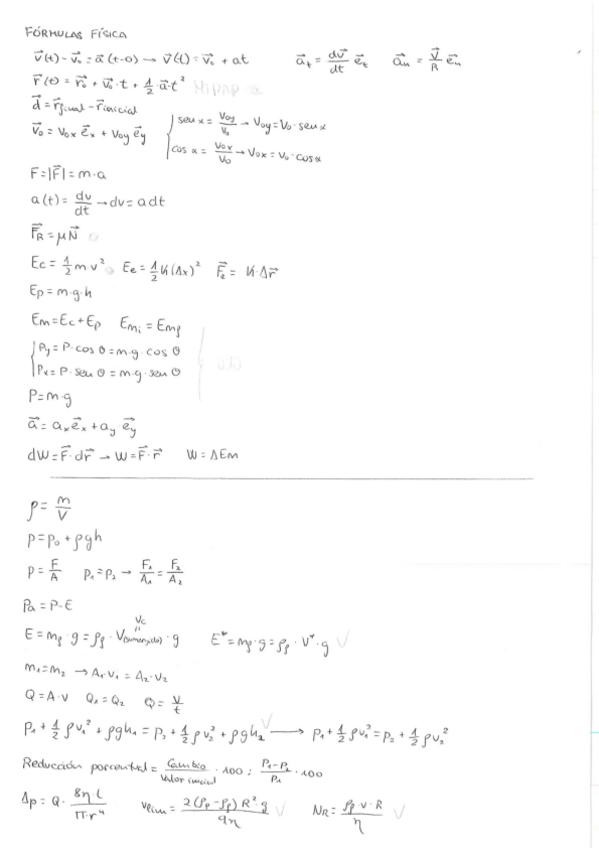 FÓRMULAS FÍSICA
v⃗(t) - v⃗₀ = a⃗(t-0) → v⃗(t) = v⃗₀ + at   a⃗ₜ = dv⃗/dt e⃗ₜ   a⃗ₙ = v⃗/R e⃗ₙ
r⃗(t) = r⃗₀ + v⃗₀·t + 1/2·a⃗·t²
d⃗ = r⃗final - r⃗inicial
v⃗₀ = v₀ₓ e⃗ₓ + v₀y e⃗y   { sen α = v₀y/v₀ → v₀y = v₀·sen α
cos α = v₀ₓ/v₀ → v₀ₓ = v₀·cos α
F = |F⃗| = m·a
a(t) = dv/dt → dv = a dt
F⃗R = μN⃗
Ec = 1/2 m v²   Ee = 1/2 K(Δx)²   F⃗e = K·Δr⃗
Ep = m·g·h
Em = Ec + Ep   Emi = Emf
{ Py = P·cos θ = m·g·cos θ
Px = P·sen θ = m·g·sen θ
P = m·g
a⃗ = aₓe⃗ₓ + ay e⃗y
dW = F⃗·dr⃗ → W = F⃗·r⃗   W = ΔEm
ρ = m/V
p = p₀ + ρgh
p = F/A   p₁ = p₂ → F₁/A₁ = F₂/A₂
Pa = P - E
Vc
E = mf·g = ρf·V(sumergido)·g   E* = mf·g = ρf·V*·g
m₁ = m₂ → A₁·v₁ = A₂·v₂
Q = A·v   Q₁ = Q₂   Q = V/t
p₁ + 1/2 ρv₁² + ρgh₁ = p₂ + 1/2 ρv₂² + ρgh₂ → p₁ + 1/2 ρv₁² = p₂ + 1/2 ρv₂²
Reducción porcentual = Cambio/Valor inicial · 100 ; P₁-P₂/P₁ · 100
Δp = Q · 8ηl/π·r⁴   vlim = 2(ρp - ρf)R²·g/9η   NR = ρf·v·R/η